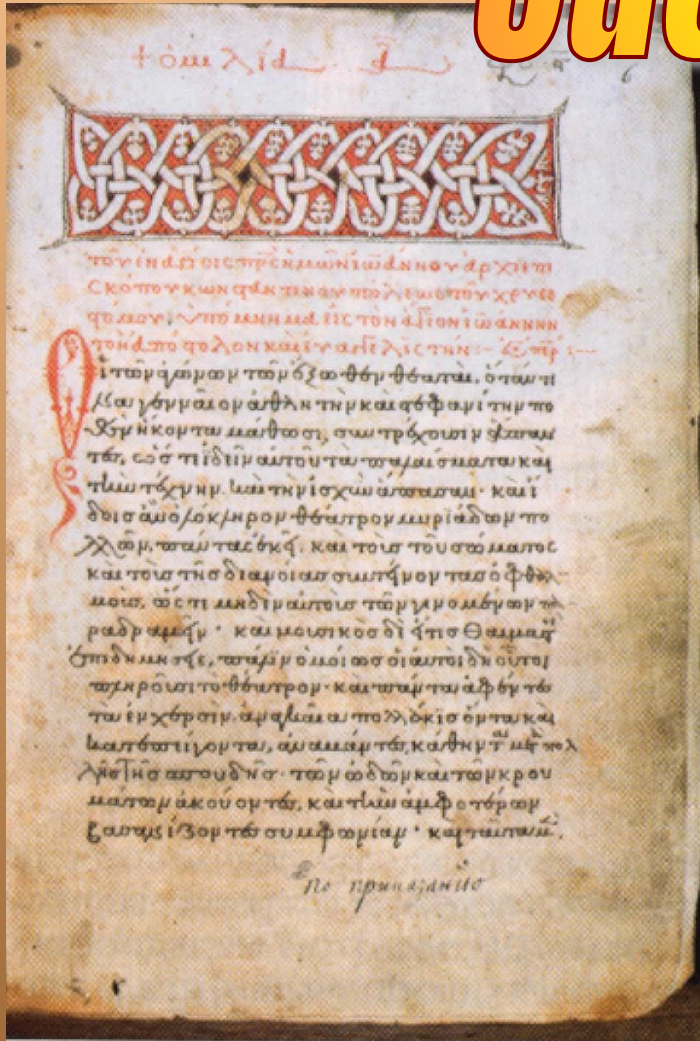 + ὁμιλία α
τοῦ ἐν ἁγίοις πρς ἡμῶν ἰωάννου ἀρχιεπι
σκόπου κωνσταντινουπόλεως τοῦ χρυσο
στόμου· ὑπόμνημα εἰς τὸν ἅγιον ἰωάννην
τὸν ἀπόστολον καὶ εὐαγγελιστήν:-
Οἱ τῶν ἀγώνων τῶν ἔξωθεν θεαταὶ, ὅταν τι
να γενναῖον ἀθλητὴν καὶ στεφανίτην πο
θὲν ἥκοντα μάθωσι, συντρέχουσιν ἅπαν
τες, ὥστε ἰδεῖν αὐτοῦ τὰ παλαίσματα καὶ
τὴν τέχνην καὶ τὴν ἰσχὺν ἅπασαν· καὶ ἴ
δοις ἂν ὁλόκληρον θέατρον μυριάδων πο
λλῶν, πάντας ἐκεῖ καὶ τοὺς τοῦ σώματος
καὶ τοὺς τῆς διανοίας συντείνοντας ὀφθαλ
μοὺς, ὥστε μηδὲν αὐτοὺς τῶν γινομένων πα
ραδραμεῖν· καὶ μουσικὸς δὲ εἴ τις θαυμαστὸς
ἐπιδημήσειε, πάλιν ὁμοίως οἱ αὐτοὶ δὴ οὗτοι
πληροῦσι τὸ θέατρον· καὶ πάντα ἀφέντες
τὰ ἐν χερσὶν, ἀναγκαῖα πολλάκις ὄντα καὶ
κατεπείγοντα, ἀναβάντες κάθηνται μετὰ πολ
λῆς τῆς σπουδῆς· τῶν ᾠδῶν καὶ τῶν κρου
μάτων ἀκούοντες, καὶ τὴν ἀμφοτέρων
βασανίζοντες συμφωνίαν· καὶ ταῦτα μὲν
по приказанiю